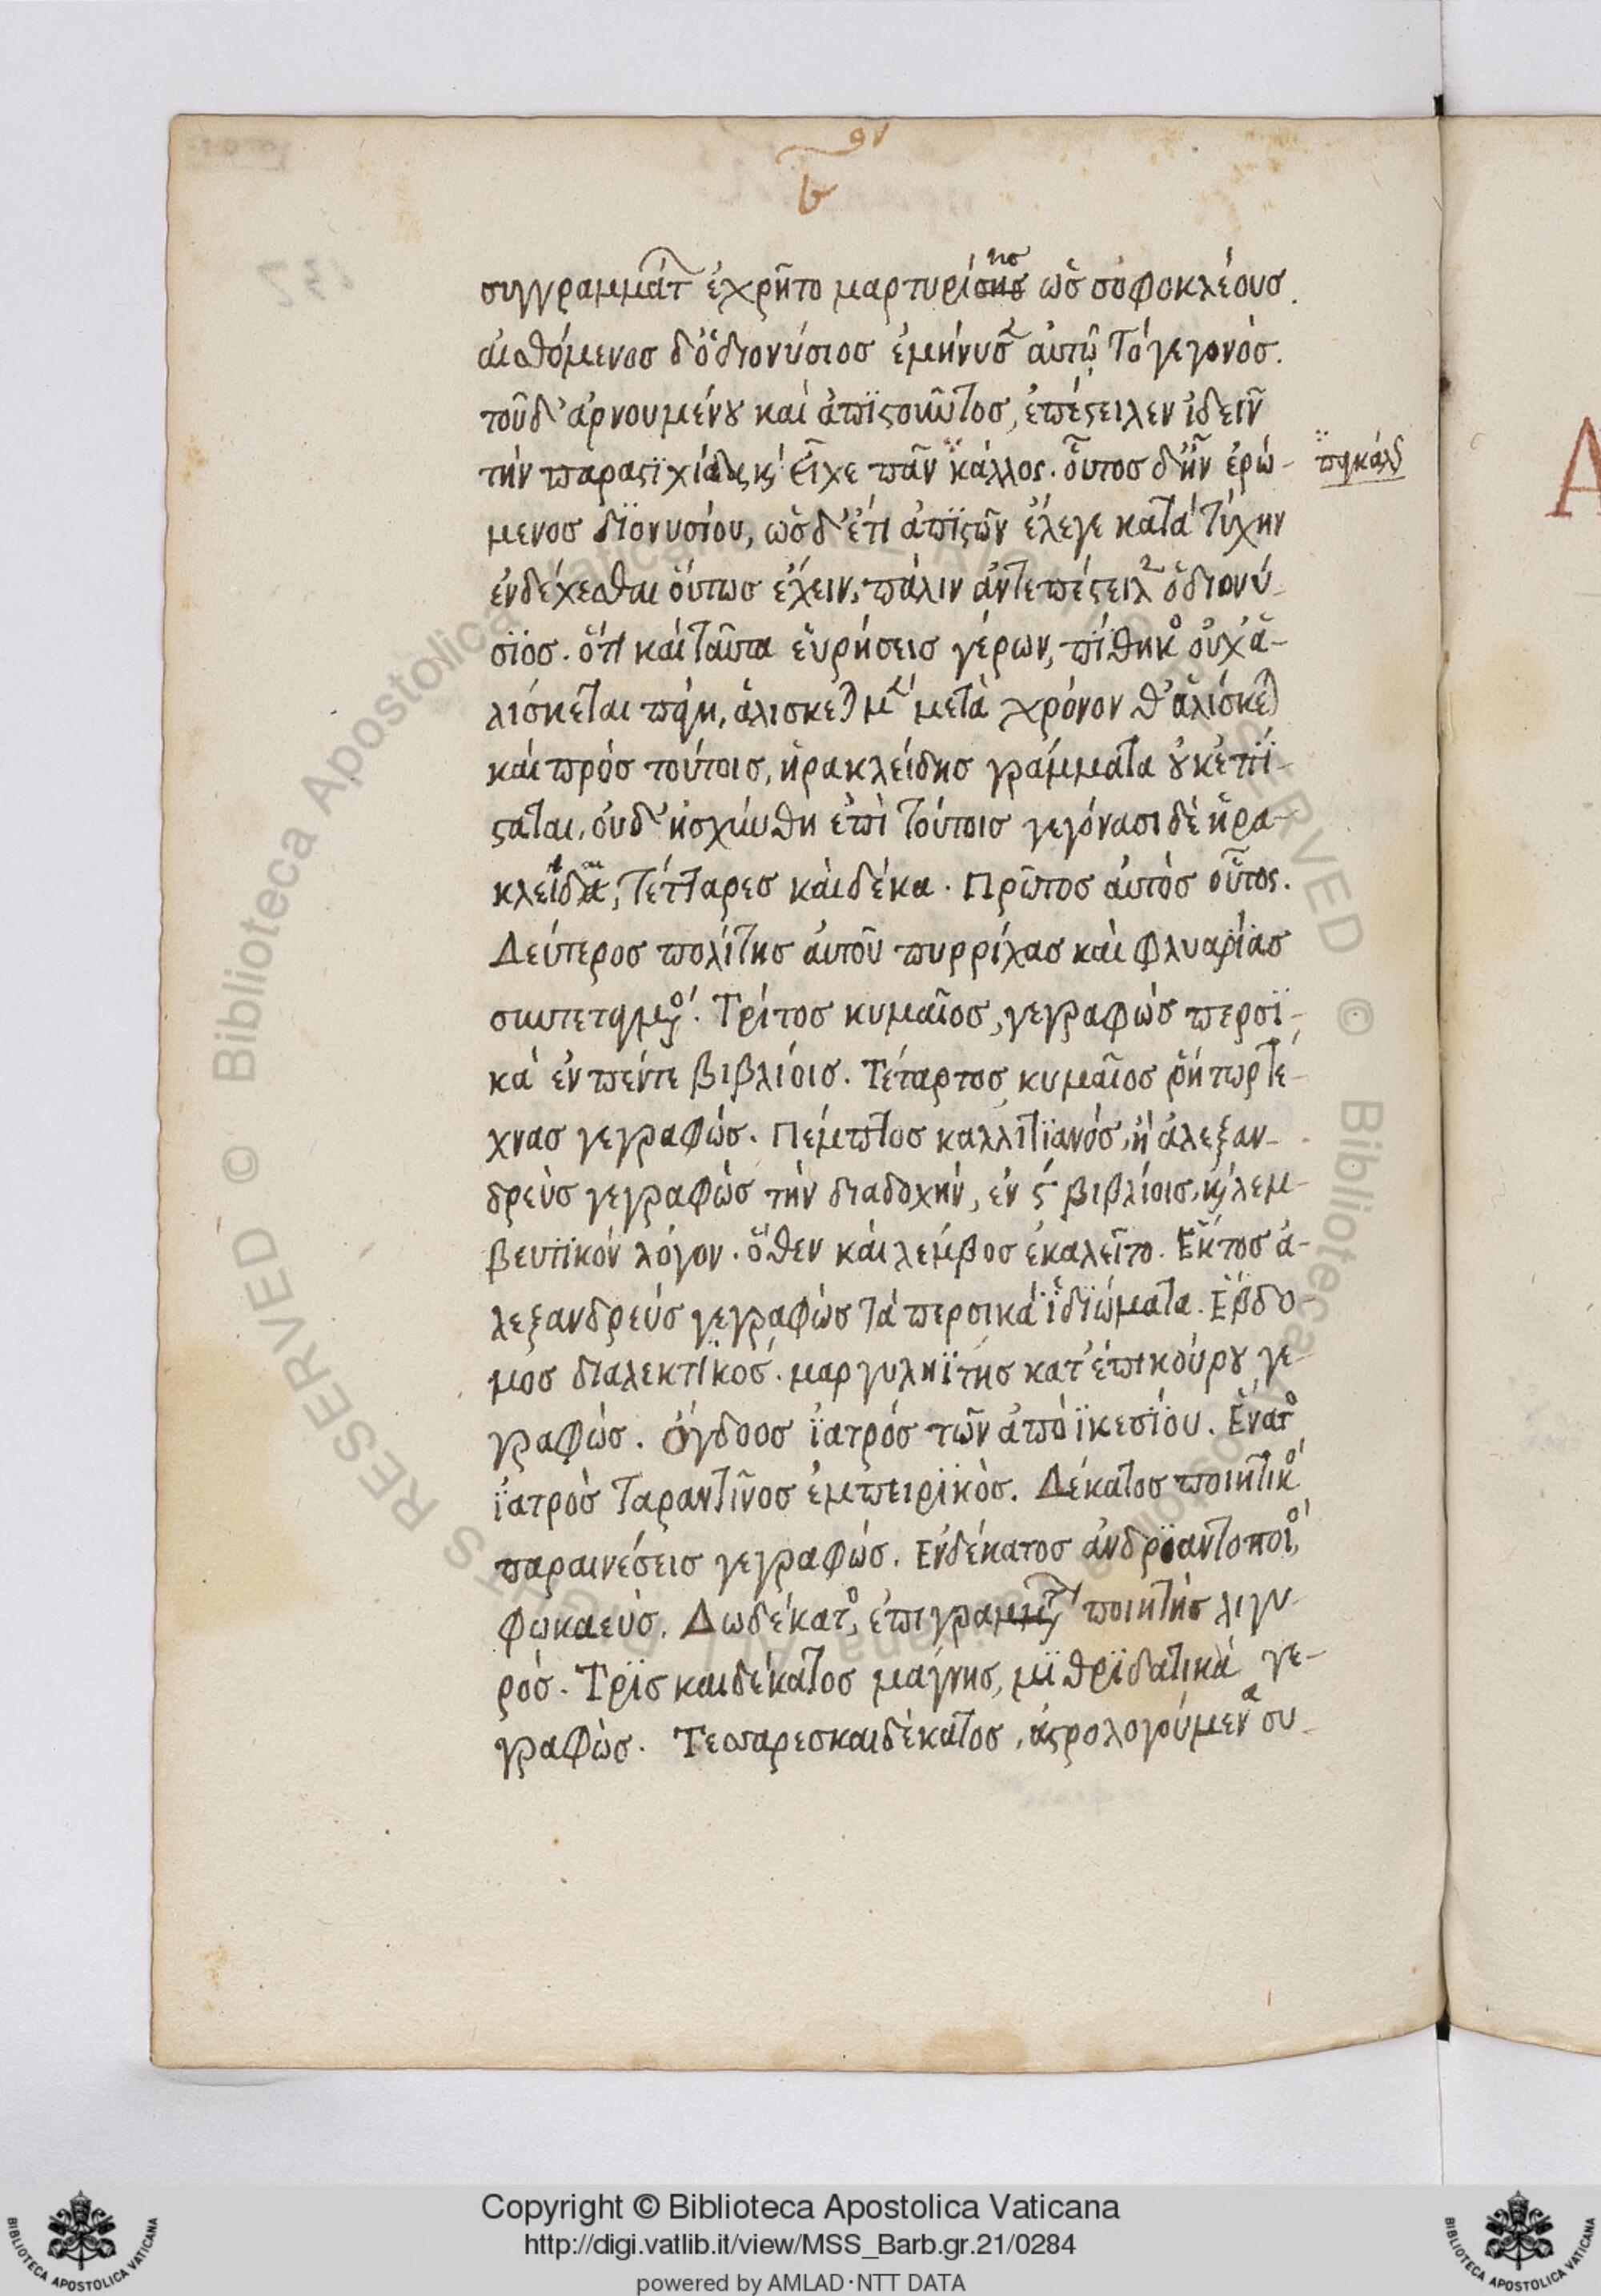 συγγραμμάτ ἐχρῆτο μαρτυρίσης ης ὡς σοφοκλέους.
αἰσθόμενος δ' ὁ διονύσιος ἐμήνυσ αὐτῷ τὸ γεγονός.
τοῦ δ' ἀρνουμένου καὶ ἀπϊστοῦντος, ἐπέστειλεν ἰδεῖν
τὴν παραστϊχίδα, καὶ εἶχε πᾶν κάλλος. οὗτος δ' ἦν ἐρώ-
μενος διονυσίου, ὡς δ' ἔτι ἀπϊστῶν ἔλεγε κατὰ τύχην
ἐνδέχεσθαι οὕτως ἔχειν, πάλιν ἀντεπέστειλ ὁ διονύ-
σϊος. ὅτι καὶ ταῦτα εὑρήσεις γέρων, πίθηκος οὐχ ἁ-
λίσκεται πάγη, ἁλίσκεται μὲν μετὰ χρόνον θ' ἁλίσκεται
καὶ πρὸς τούτοις, ἡρακλείδης γράμματα οὐκ ἐπί-
σταται, οὐδ' ᾐσχύνθη ἐπὶ τούτοις γεγόνασι δὲ ἡρα-
κλεῖδαι, τέτταρες καὶ δέκα. Πρῶτος αὐτὸς οὗτος.
Δεύτερος πολίτης αὐτοῦ πυρρίχας καὶ φλυαρίας
συντεταγμένος. Τρίτος κυμαῖος, γεγραφὼς περσϊ-
κὰ ἐν πέντε βιβλίοις. Τέταρτος κυμαῖος ῥήτωρ τέ-
χνας γεγραφώς. Πέμπτος καλλιτϊανός, ἢ ἀλεξαν-
δρεὺς γεγραφὼς τὴν διαδοχήν, ἐν ϛ βιβλίοις, καὶ λεμ-
βευτϊκόν λόγον. ὅθεν καὶ λέμβος ἐκαλεῖτο. Ἕκτος ἀ-
λεξανδρεύς γεγραφὼς τὰ περσικά ϊδϊώματα. Ἕβδο-
μος διαλεκτϊκός. μαργυληϊτης κατ' ἐπικούρου γε-
γραφώς. ὄγδοος ϊατρός τῶν ἀπὸ ϊκεσίου. Ἔνατος
ϊατρὸς ταραντῖνος ἐμπειρϊκὸς. Δέκατος ποιητικός
παραινέσεις γεγραφώς. Ενδέκατος ἀνδρϊαντοποιός,
φωκαεύς. Δωδέκατος, ἐπιγραμμάτων ποιητὴς λιγυ-
ρός. Τρϊς καιδέκατος μάγνης, μϊθρϊδατικά γε-
γραφὼς. Τεσσαρεσκαιδέκατος, ἀστρολογούμενα συ-
Copyright © Biblioteca Apostolica Vaticana
http://digi.vatlib.it/view/MSS_Barb.gr.21/0284
powered by AMLAD·NTT DATA